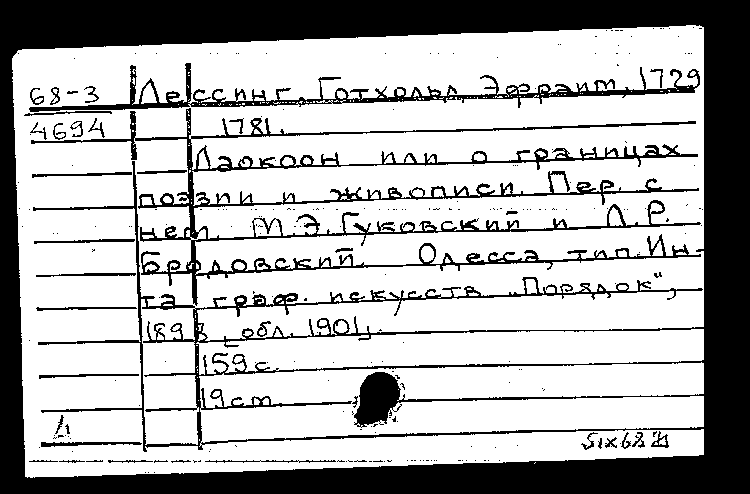 68-3 Лессинг, Готхольд Эфраим, 1729
4694 1781.
Лаокоон или о границах
поэзии и живописи. Пер. с
нем. М.Э.Гуковский и Л.Р.
Бродовский. Одесса, тип. Ин-
та граф. искусств „Порядок",
189 [обл. 1901].
159 с.
19 см.